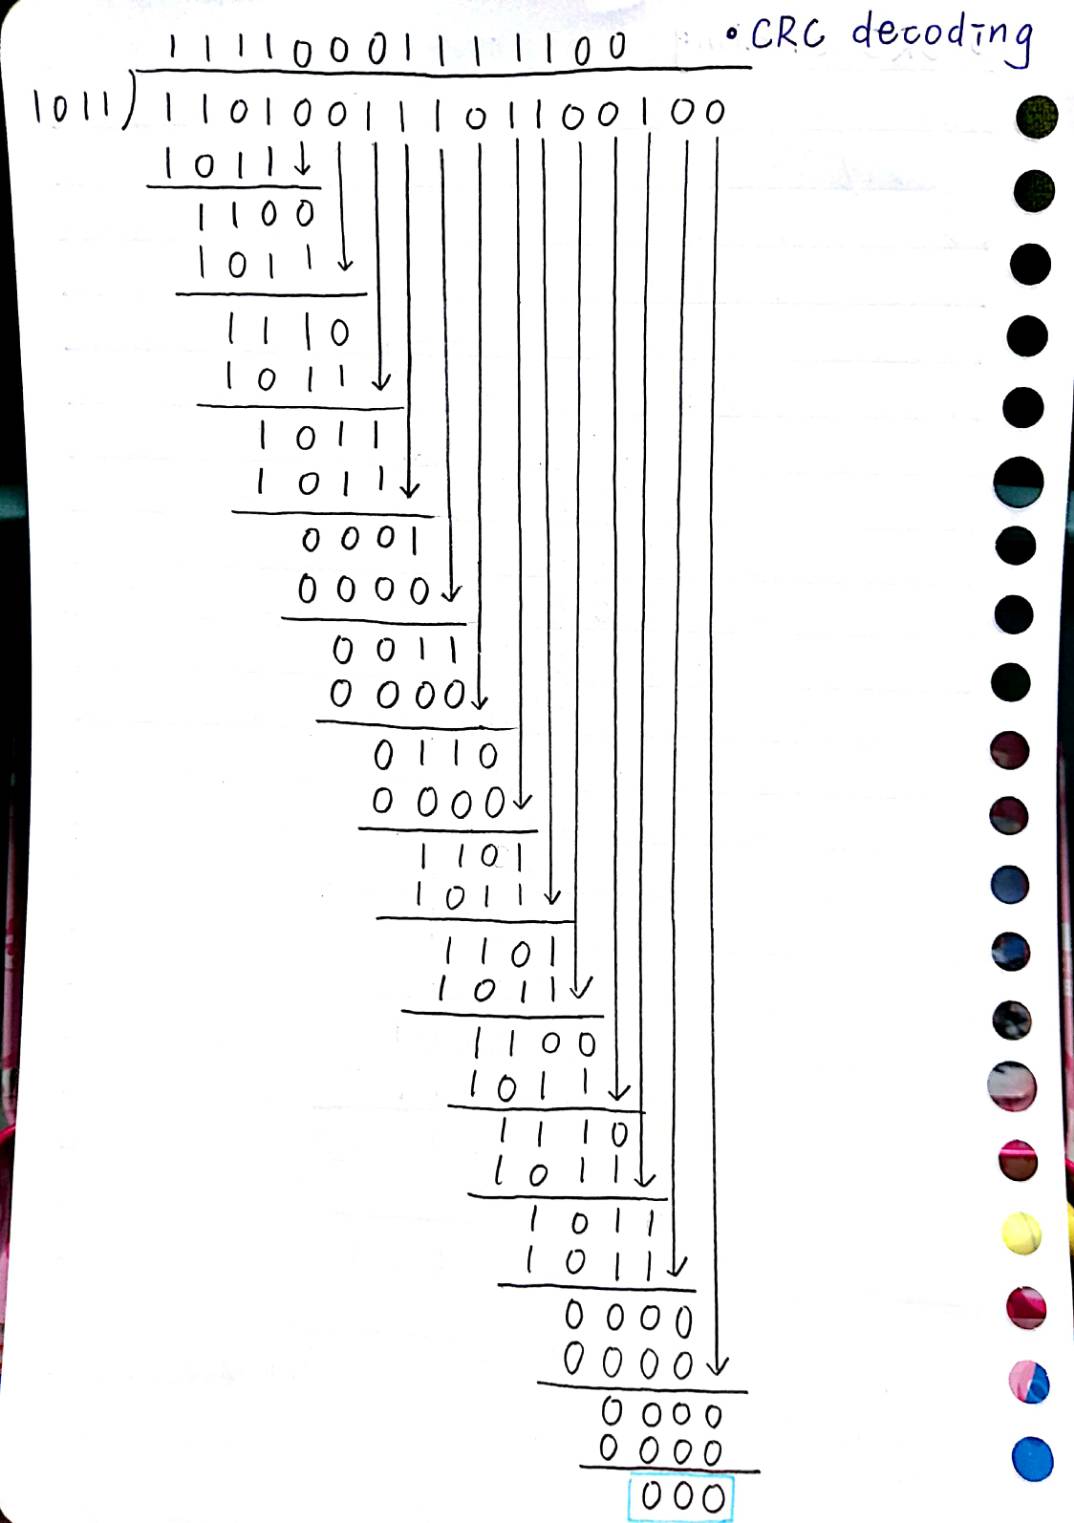 • CRC decoding
11110001111100
1011)11010011101100100
1011
1100
1011
1110
1011
1011
1011
0001
0000
0011
0000
0110
0000
1101
1011
1101
1011
1100
1011
1110
1011
1011
1011
0000
0000
0000
0000
000